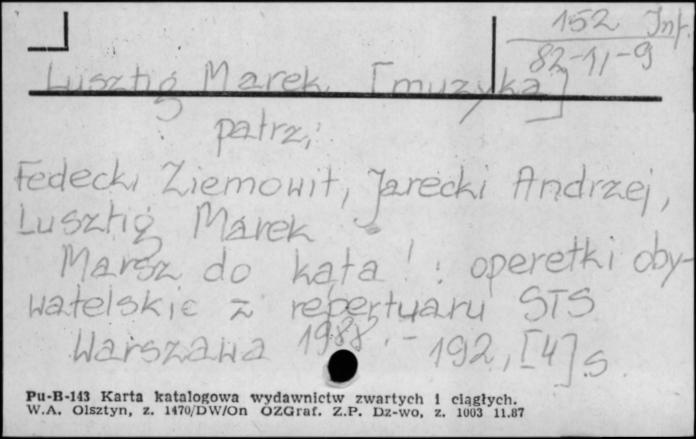 152 Inf.
82-11-9
Lusztig Marek [muzyka]
patrz:
Fedecki Ziemowit, Jarecki Andrzej,
Lusztig Marek
Marsz do kąta! : operetki oby-
watelskie z repertuaru STS
Warszawa 1988. - 192, [4] s.
Pu-B-143 Karta katalogowa wydawnictw zwartych i ciągłych.
W.A. Olsztyn, z. 1470/DW/On OZGraf. Z.P. Dz-wo, z. 1003 11.87